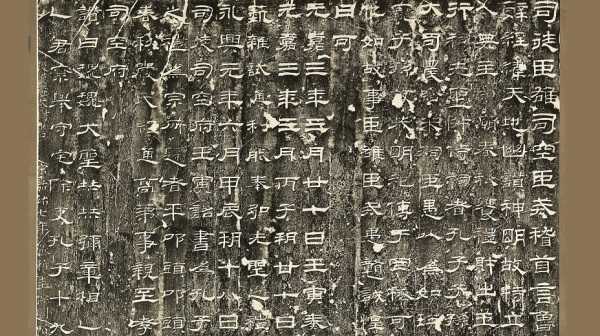 司徒臣雄司空臣戒稽首言魯
辭經緯天地幽讚神明故特立
人典主守廟春秋饗禮財出王
行祠先聖師侍祠者孔子子孫
大司農給米祠臣愚以為如瑛
寵子孫敬恭明祀傳于罔極可
他如故事臣雄臣戒愚戇誠惶
曰可
元嘉三年三月廿七日壬寅奏
元嘉三年三月丙子朔廿七日
藝雜試通利能奉弘先聖之禮
永興元年六月甲辰朔十八日
司徒司空府壬寅詔書為孔子
之禮為宗所歸者平叩頭叩頭
春秋嚴氏經通高第事親至孝
司空府
讚曰巍巍大聖赫赫彌章相乙
人君察舉守宅除吏孔子十九